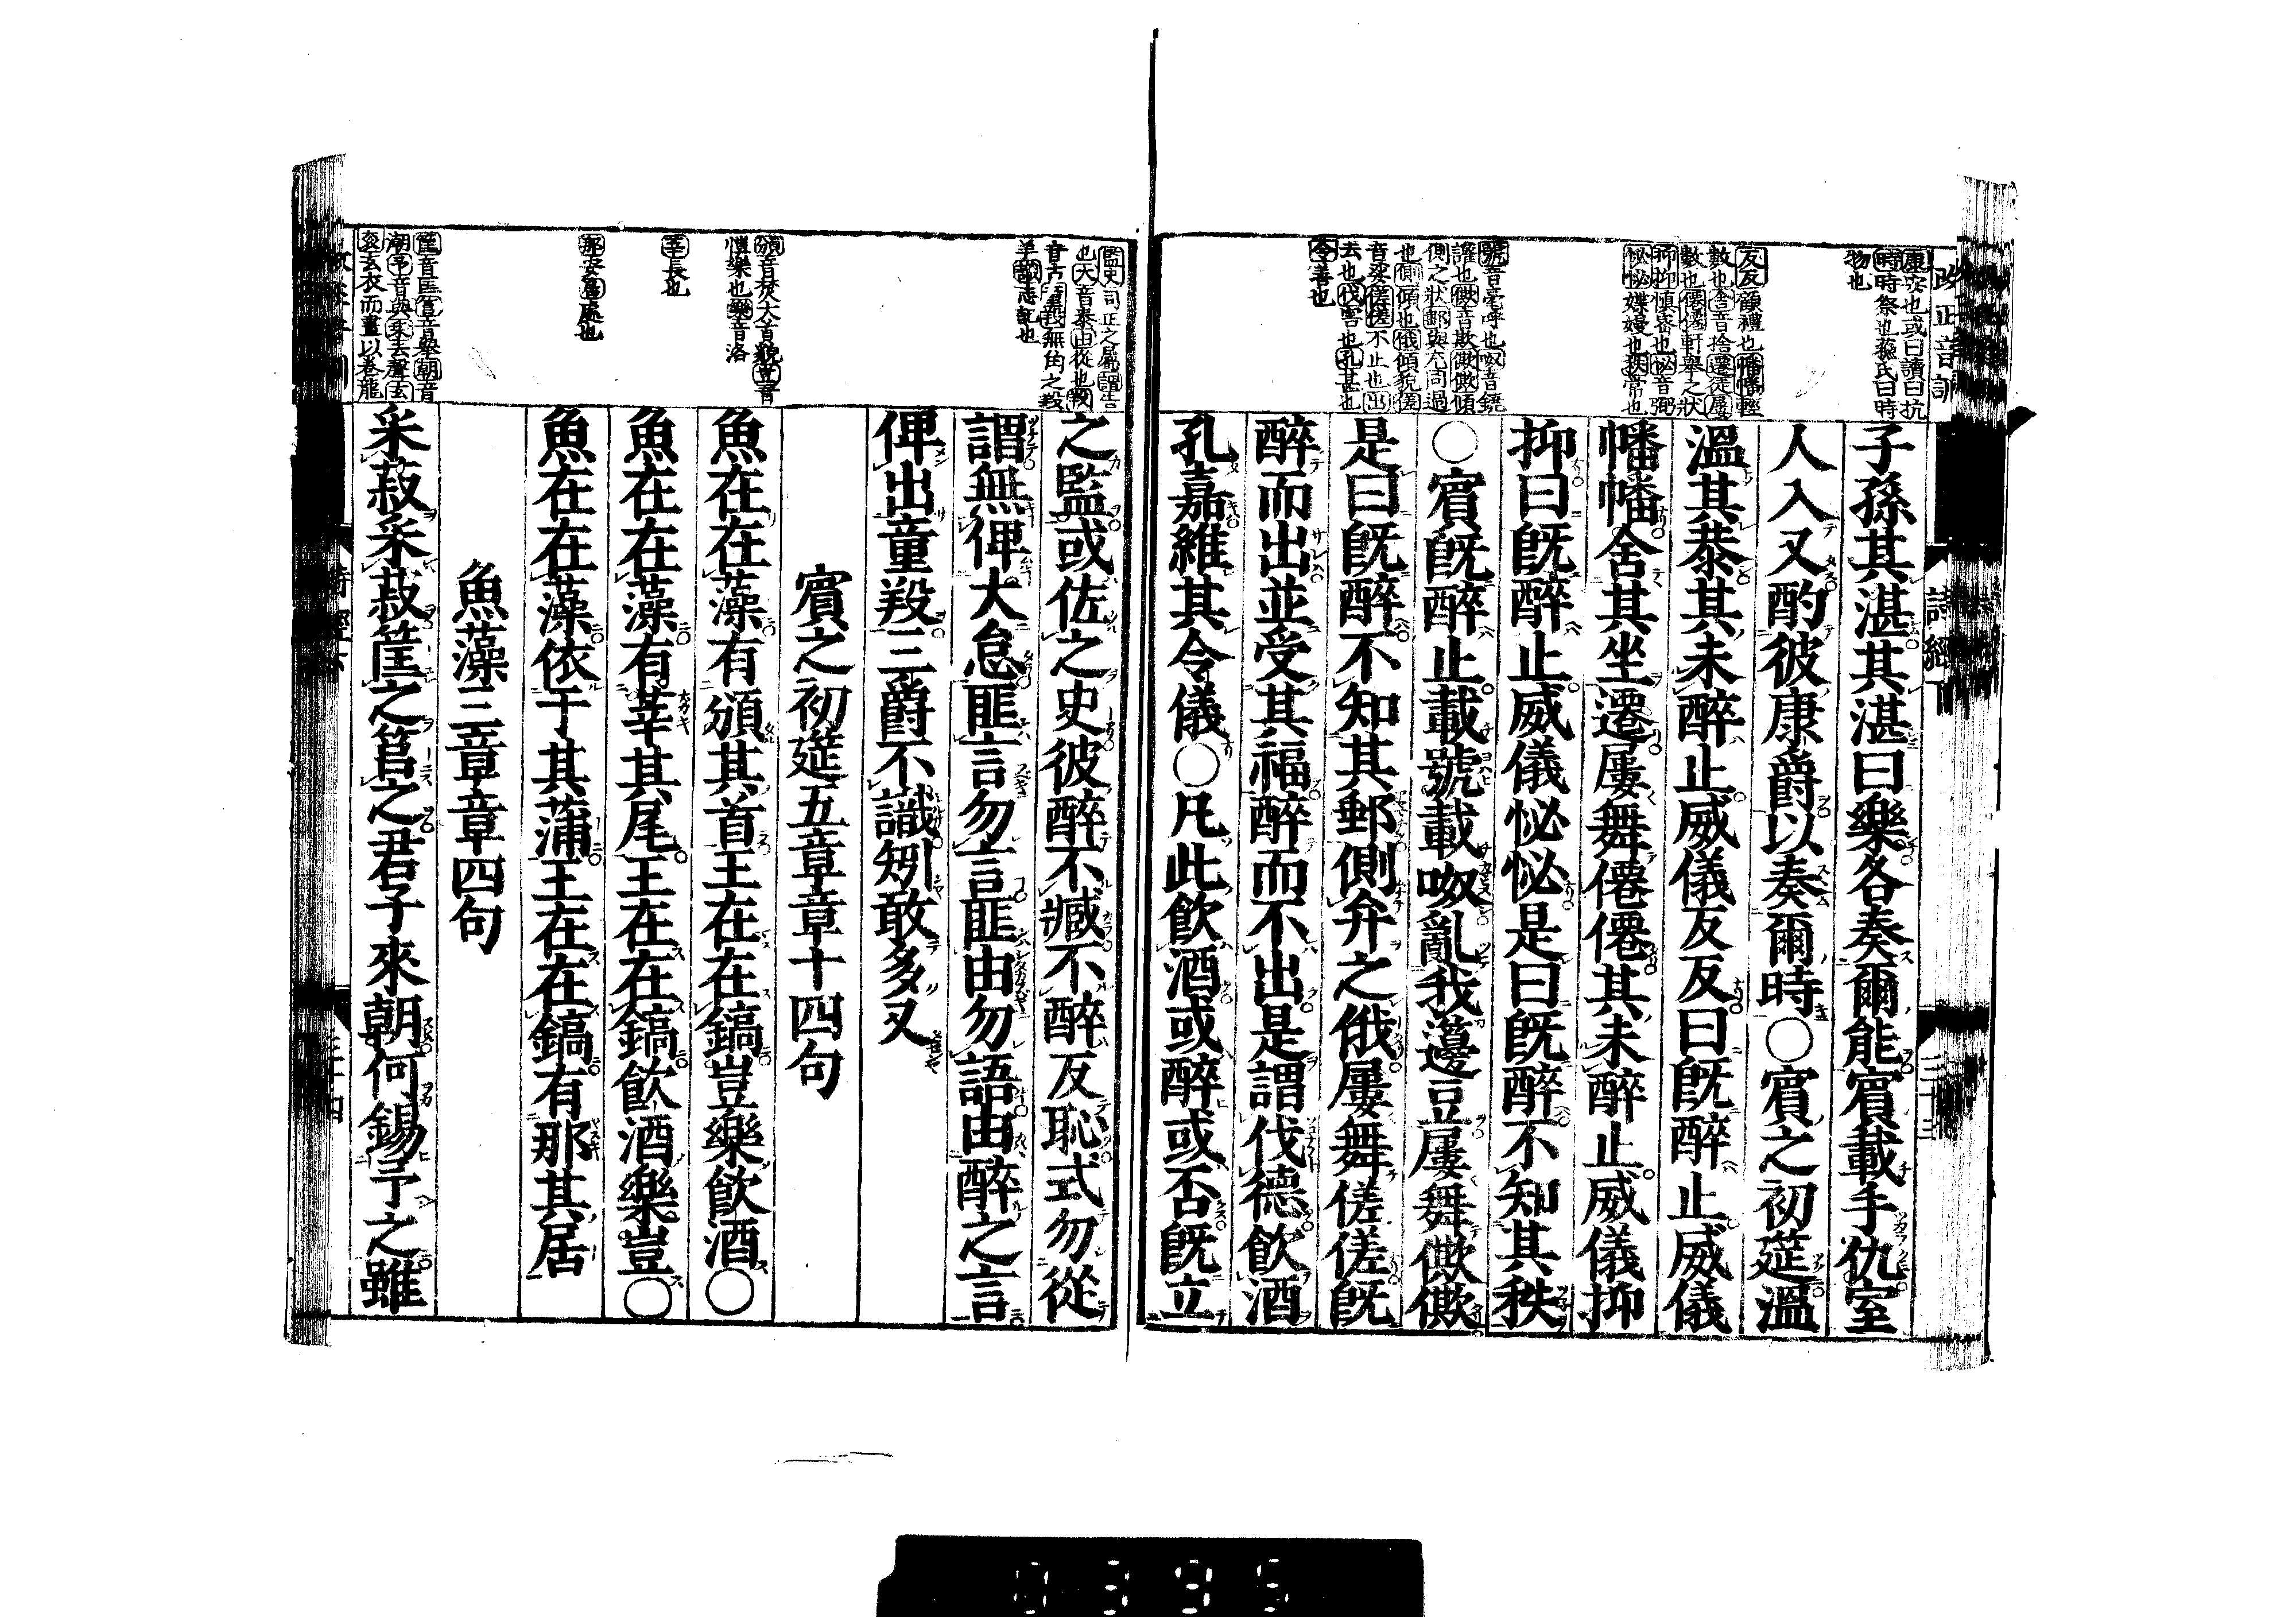 改正音訓
詩經下
二十三
康安也或曰讀曰抗
時時祭也蘇氏曰時
物也
反反顧禮也幡幡輕
數也舍音捨遷徙屢
數也僊僊軒舉之狀
抑抑慎密也怭音弼
怭怭媟嫚也秩常也
號音毫呼也呶音鐃
讙也僛音欺僛僛傾
側之狀郵與尤同過
也側傾也俄傾貌傞
音娑傞傞不止也出
去也伐害也孔甚也
令善也
子孫其湛其湛曰樂各奏爾能賓載手仇室
人入又酌彼康爵以奏爾時○賓之初筵溫
溫其恭其未醉止威儀反反曰既醉止威儀
幡幡舍其坐遷屢舞僊僊其未醉止威儀抑
抑曰既醉止威儀怭怭是曰既醉不知其秩
○賓既醉止載號載呶亂我籩豆屢舞僛僛
是曰既醉不知其郵側弁之俄屢舞傞傞既
醉而出並受其福醉而不出是謂伐德飲酒
孔嘉維其令儀○凡此飲酒或醉或否既立
監史司正之屬謂告
也大音泰由從也羖
音古童羖無角之羖
羊識志記也
頒音焚大首貌豈音
愷樂也樂音洛
莘長也
那安居處也
筐音匡筥音舉朝音
潮予音與乘去聲玄
袞玄衣而畫以卷龍
之監或佐之史彼醉不臧不醉反恥式勿從
謂無俾大怠匪言勿言匪由勿語由醉之言
俾出童羖三爵不識矧敢多又
賓之初筵五章章十四句
魚在在藻有頒其首王在在鎬豈樂飲酒○
魚在在藻有莘其尾王在在鎬飲酒樂豈○
魚在在藻依于其蒲王在在鎬有那其居
魚藻三章章四句
采菽采菽筐之筥之君子來朝何錫予之雖
0395